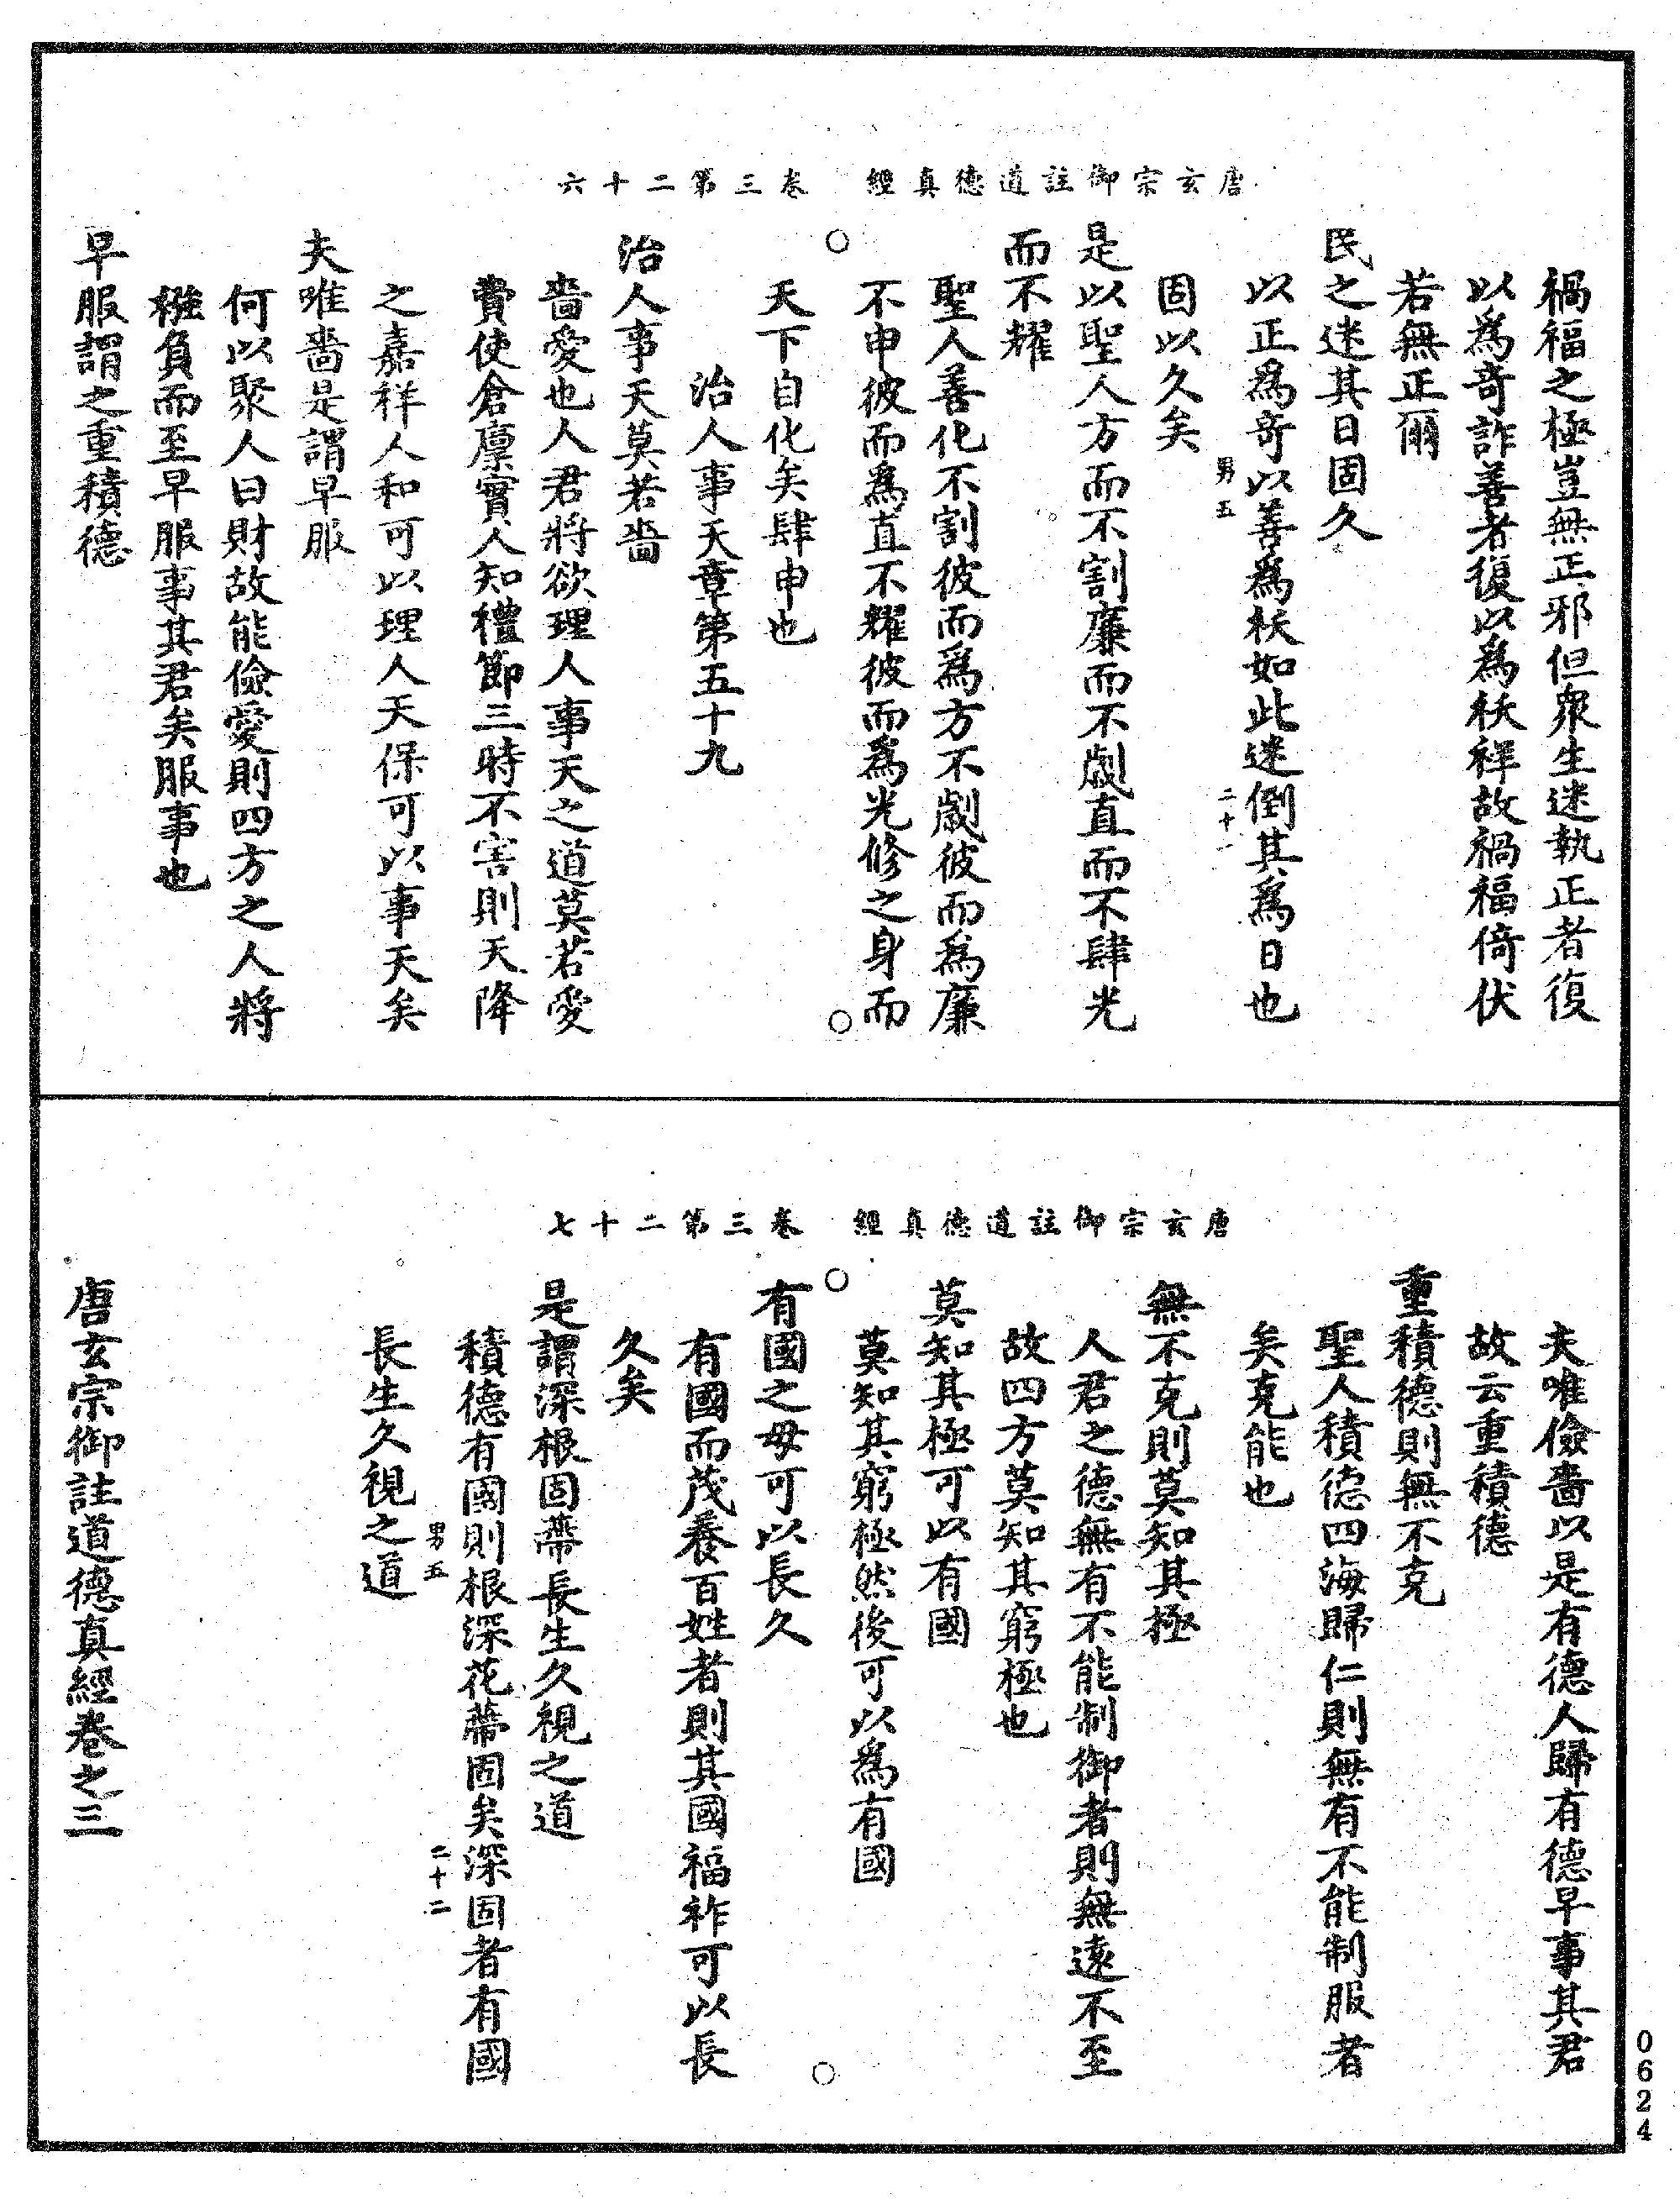 唐玄宗御註道德真經　卷三第二十六
禍福之極豈無正邪但衆生迷執正者復
以爲奇詐善者復以爲祅祥故禍福倚伏
若無正爾
民之迷其日固久
以正爲奇以善爲祅如此迷倒其爲日也
男五　二十一
固以久矣
是以聖人方而不割廉而不劌直而不肆光
而不耀
聖人善化不割彼而爲方不劌彼而爲廉
不申彼而爲直不耀彼而爲光修之身而
○　○
天下自化矣肆申也
治人事天章第五十九
治人事天莫若嗇
嗇愛也人君將欲理人事天之道莫若愛
費使倉廪實人知禮節三時不害則天降
之嘉祥人和可以理人天保可以事天矣
夫唯嗇是謂早服
何以聚人曰財故能儉愛則四方之人將
襁負而至早服事其君矣服事也
早服謂之重積德
唐玄宗御註道德真經　卷三第二十七
夫唯儉嗇以是有德人歸有德早事其君
故云重積德
重積德則無不克
聖人積德四海歸仁則無有不能制服者
矣克能也
無不克則莫知其極
人君之德無有不能制御者則無遠不至
故四方莫知其窮極也
莫知其極可以有國
莫知其窮極然後可以爲有國
○　○
有國之母可以長久
有國而茂養百姓者則其國福祚可以長
久矣
是謂深根固蔕長生久視之道
積德有國則根深花蔕固矣深固者有國
男五　二十二
長生久視之道
唐玄宗御註道德真經卷之三
0624